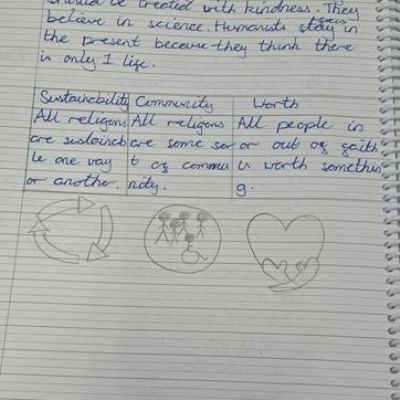 should be treated with kindness. They
believe in science. Humanists stay in
the present because they think there
is only 1 life.
Sustainability Community Worth
All religons All religons All people in
are sustainab are some sor or out of faith
le one way t of commu is worth somethin
or another. nity. g.